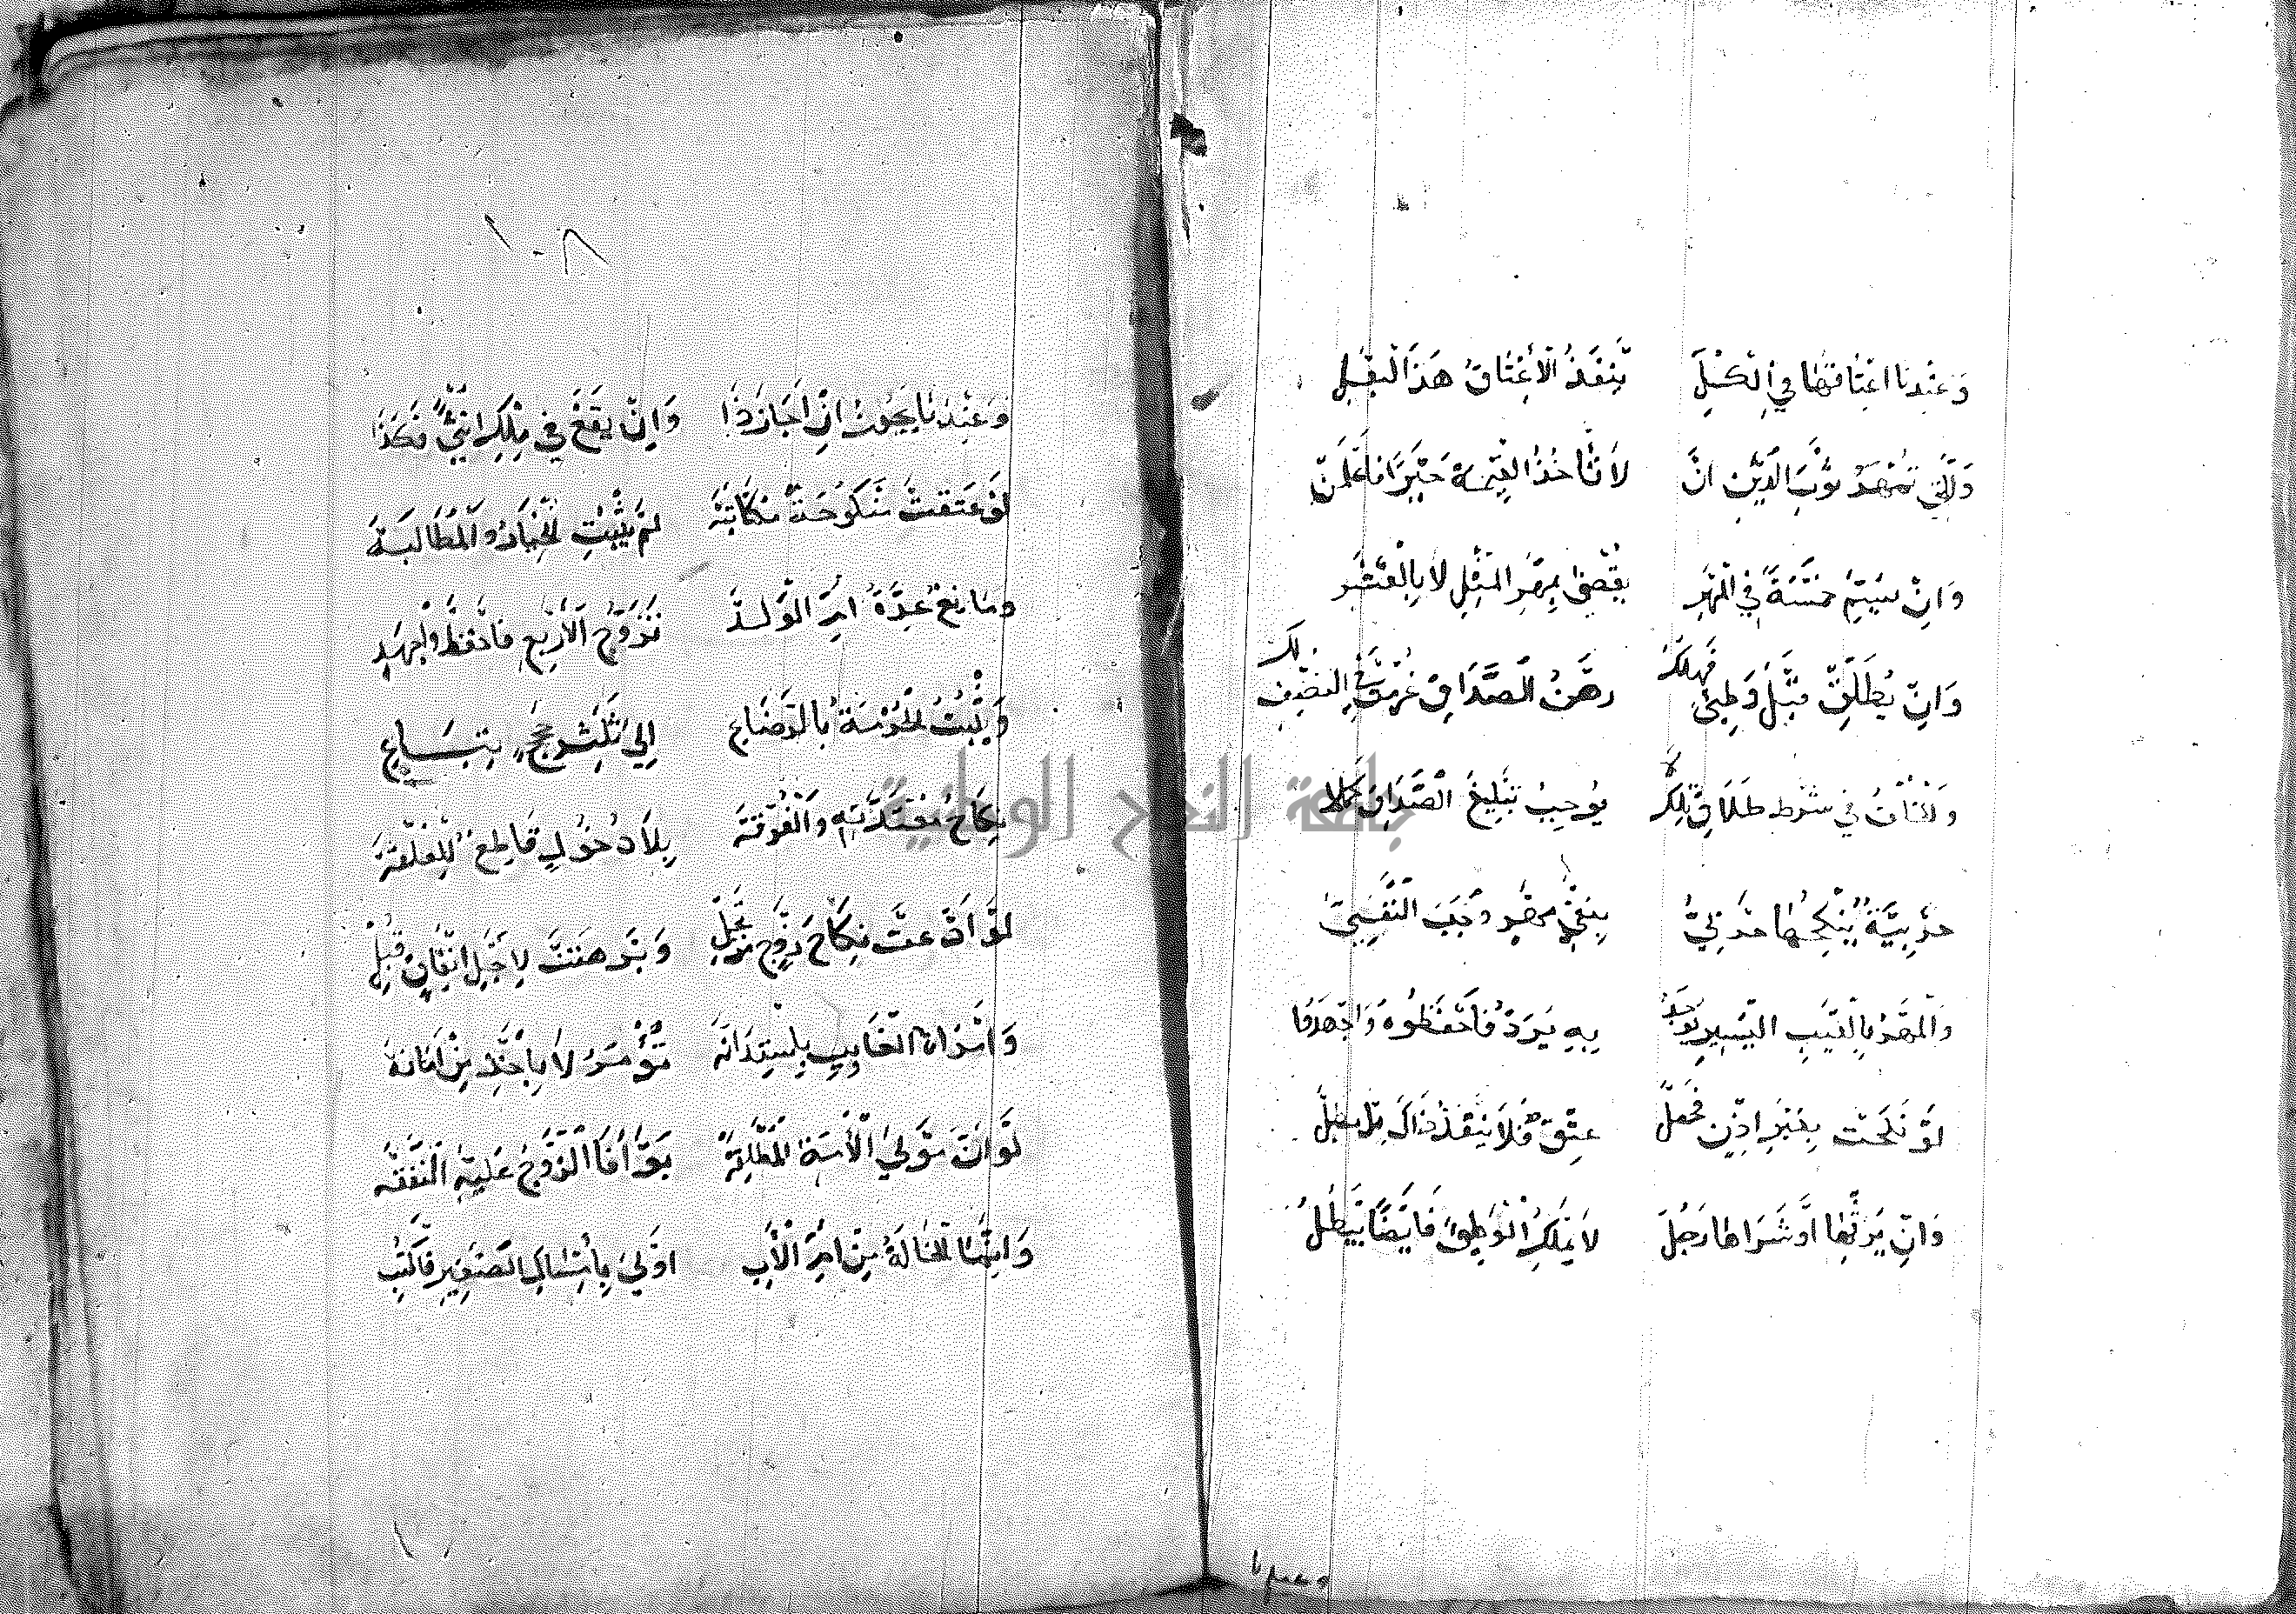 وَعِنْدَنَا اعْتَاقُهَا فِي الْكُلِّ يَنْفُذُ الْأعْتَاقُ هَذَا
وَالَّتِي تَمْهَرُ ثَوْبَ الدَّيْنِ انْ لَا تَأْخُذُ الْقِيمَةَ
وَانْ يُتِمَّ خَمْسَةً فِي الْمَهْرِ يُقْضَى بِمَهْرِ الْمِثْلِ لَا بِالْعَشْرِ
وَانْ يُطَلِّقْ قَبْلَ وَطْئٍ فَهَلَكْ رَهْنُ الصَّدَاقِ النِّصْفِ لَكْ
فِي شَرْطِ طَلَاقِ تِلْكَ لَا يُوجِبُ تَبْلِيغَ الصَّدَاقِ كَمَلَا
حَرْبِيَّةٌ يَنْكِحُهَا حَرْبِيُّ بِنَفْيِ مَهْرٍ وَجَبَ النَّفْسِيُّ
وَالْمَهْرُ بِالْعَيْبِ الْيَسِيرِ يُوجَدُ بِهِ يُرَدُّ فَاحْفَظُوهُ وَاجْهَدُوا
لَوْ نَكَحَتْ بِغَيْرِ اذْنٍ فَحَصَلْ عِتْقٌ فَلَا يَنْفُذُ ذَاكَ بَلْ بَطَلْ
وَانْ يَرِثْهَا أَوْ شَرَاهَا رَجُلُ لَا يَمْلِكُ الْوَطْئَ فَايْضًا يَبْطُلُ
وعندنا
١٠٨
وَعِنْدَنَا يَجُوزُ انْ اجَازَ ذَا وَانْ يَقَعْ فِي مِلْكِ انْثَى فَكَذَا
لَوْ عَتَقَتْ مَنْكُوحَةً مُكَاتَبَهْ لَمْ يَثْبُتِ الْخِيَارُ وَالْمُطَالَبَهْ
وَمَانِعٌ عِدَّةُ امِّ الْوَلَدِ تَزَوُّجَ الْأَرْبَعِ فَاحْفَظْ وَاجْهَدِ
وَيَثْبُتُ الْحُرْمَةُ بِالرَّضَاعِ الَى ثَلَاثِ حِجَجٍ تِبَاعِ
نِكَاحُ مُعْتَدَّتِهِ وَالْفُرْقَةَ بِلَا دُخُولٍ قَاطِعٌ لِلْعُلْقَةَ
لَوْ ادَّعَتْ نِكَاحَ زَوْجٍ وَبَرْهَنَتْ لِأَجْلِ انْفَاقٍ قُبِلْ
وَامْرَاةُ الْغَايِبِ بِاسْتِدَانَهْ تُؤْمَرُ لَا بِأَخْذٍ مِنْ امَانَهْ
لَوْ انَّ مَوْلَى الْأَمَةِ الْمُطَلَّقَهْ بَوَّأَهَا الزَّوْجُ عَلَيْهِ النَّفَقَهْ
وَانَّمَا الْخَالَةُ مِنْ امِّ الْأَبِ اوْلَى بِامْسَاكِ الصَّغِيرِ فَاكْتُبِ
جامعة النجاح الوطنية